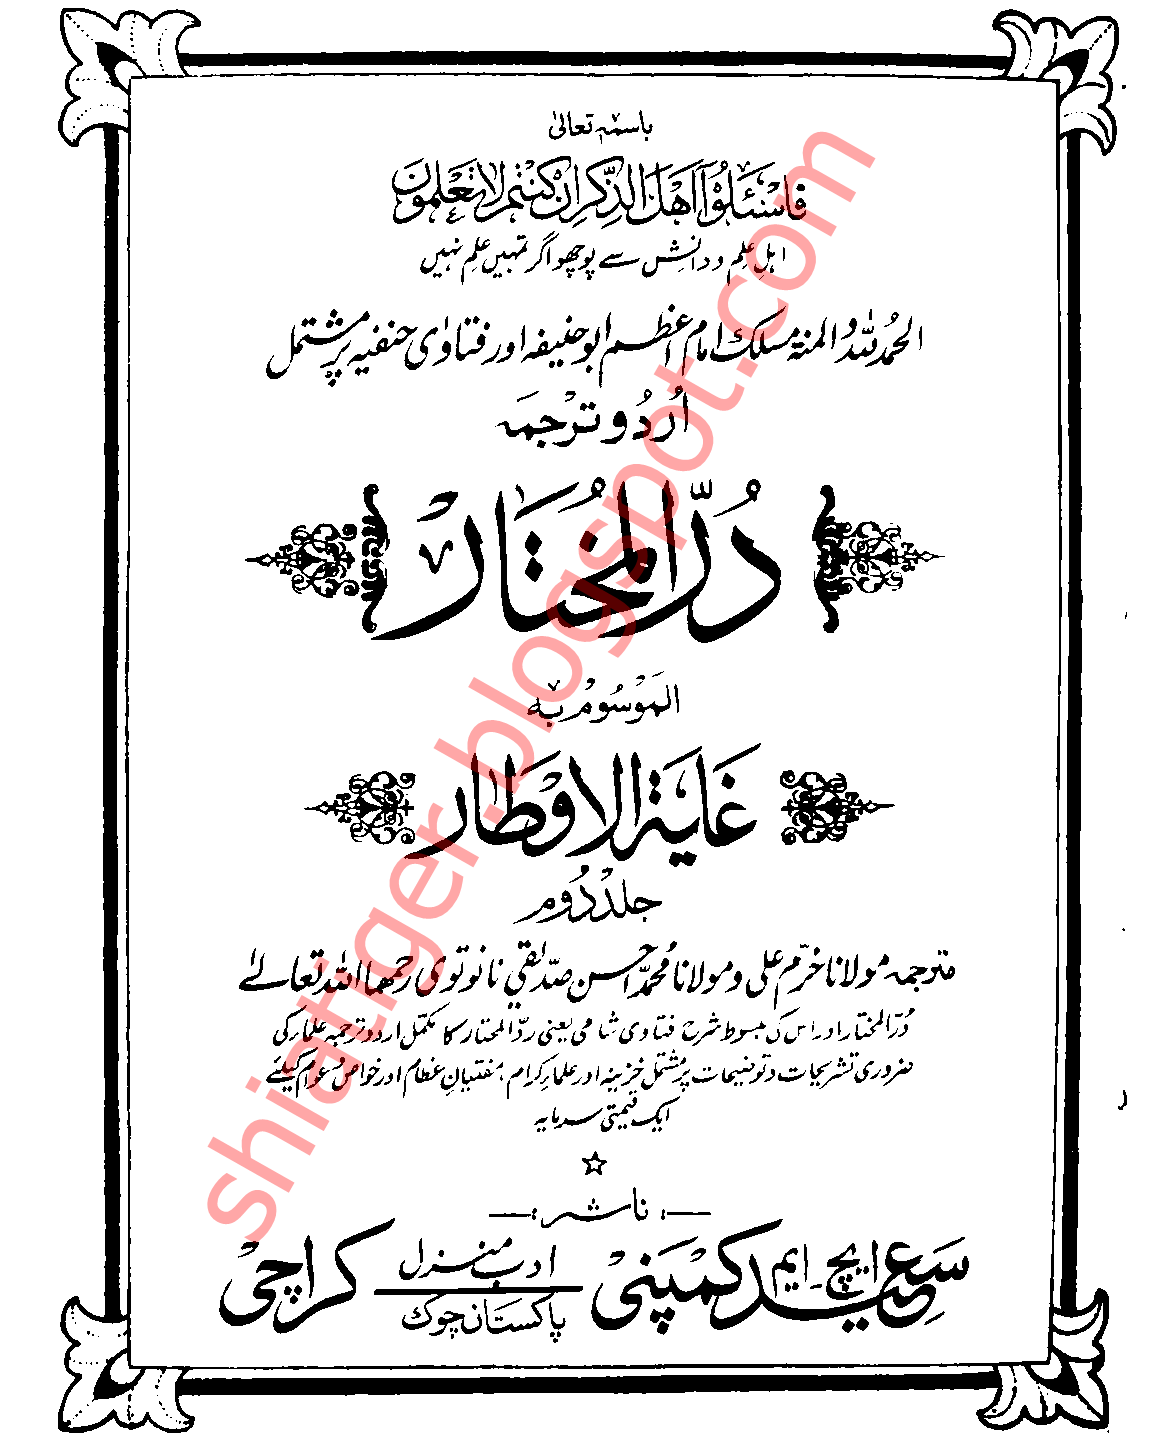 باسمہ تعالیٰ
فَاسْئَلُوْۤا اَهْلَ الذِّكْرِ اِنْ كُنْتُمْ لَا تَعْلَمُوْنَ
اہلِ علم و دانش سے پوچھو اگر تمہیں علم نہیں
الحمدُ للہ والمنۃ مسلک امام اعظم ابوحنیفہ اور فتاوٰی حنفیہ پر مشتمل
اُردُو ترجمہ
دُرِّ المُختَار
المَوْسُوْم بہٖ
غَایَۃ الاوطار
جلد دُوم
مترجمہ مولانا خرّم علی و مولانا محمّد احسن صدّیقی نانوتوی رحمھما اللہ تعالےٰ
دُرّالمختار اور اس کی مبسوط شرح فتاوی شامی یعنی ردّالمحتار کا مکمل اردو ترجمہ علماء کی
ضروری تشریحات و توضیحات پر مشتمل خزینہ اور علماءِ کرام، مفتیانِ عظام اور خواص و عوام کیلئے
ایک قیمتی سرمایہ
ناشر
ایچ۔ ایم سَعِید کمپنی ادب منزل پاکستان چوک کراچی
shiatiger.blogspot.com